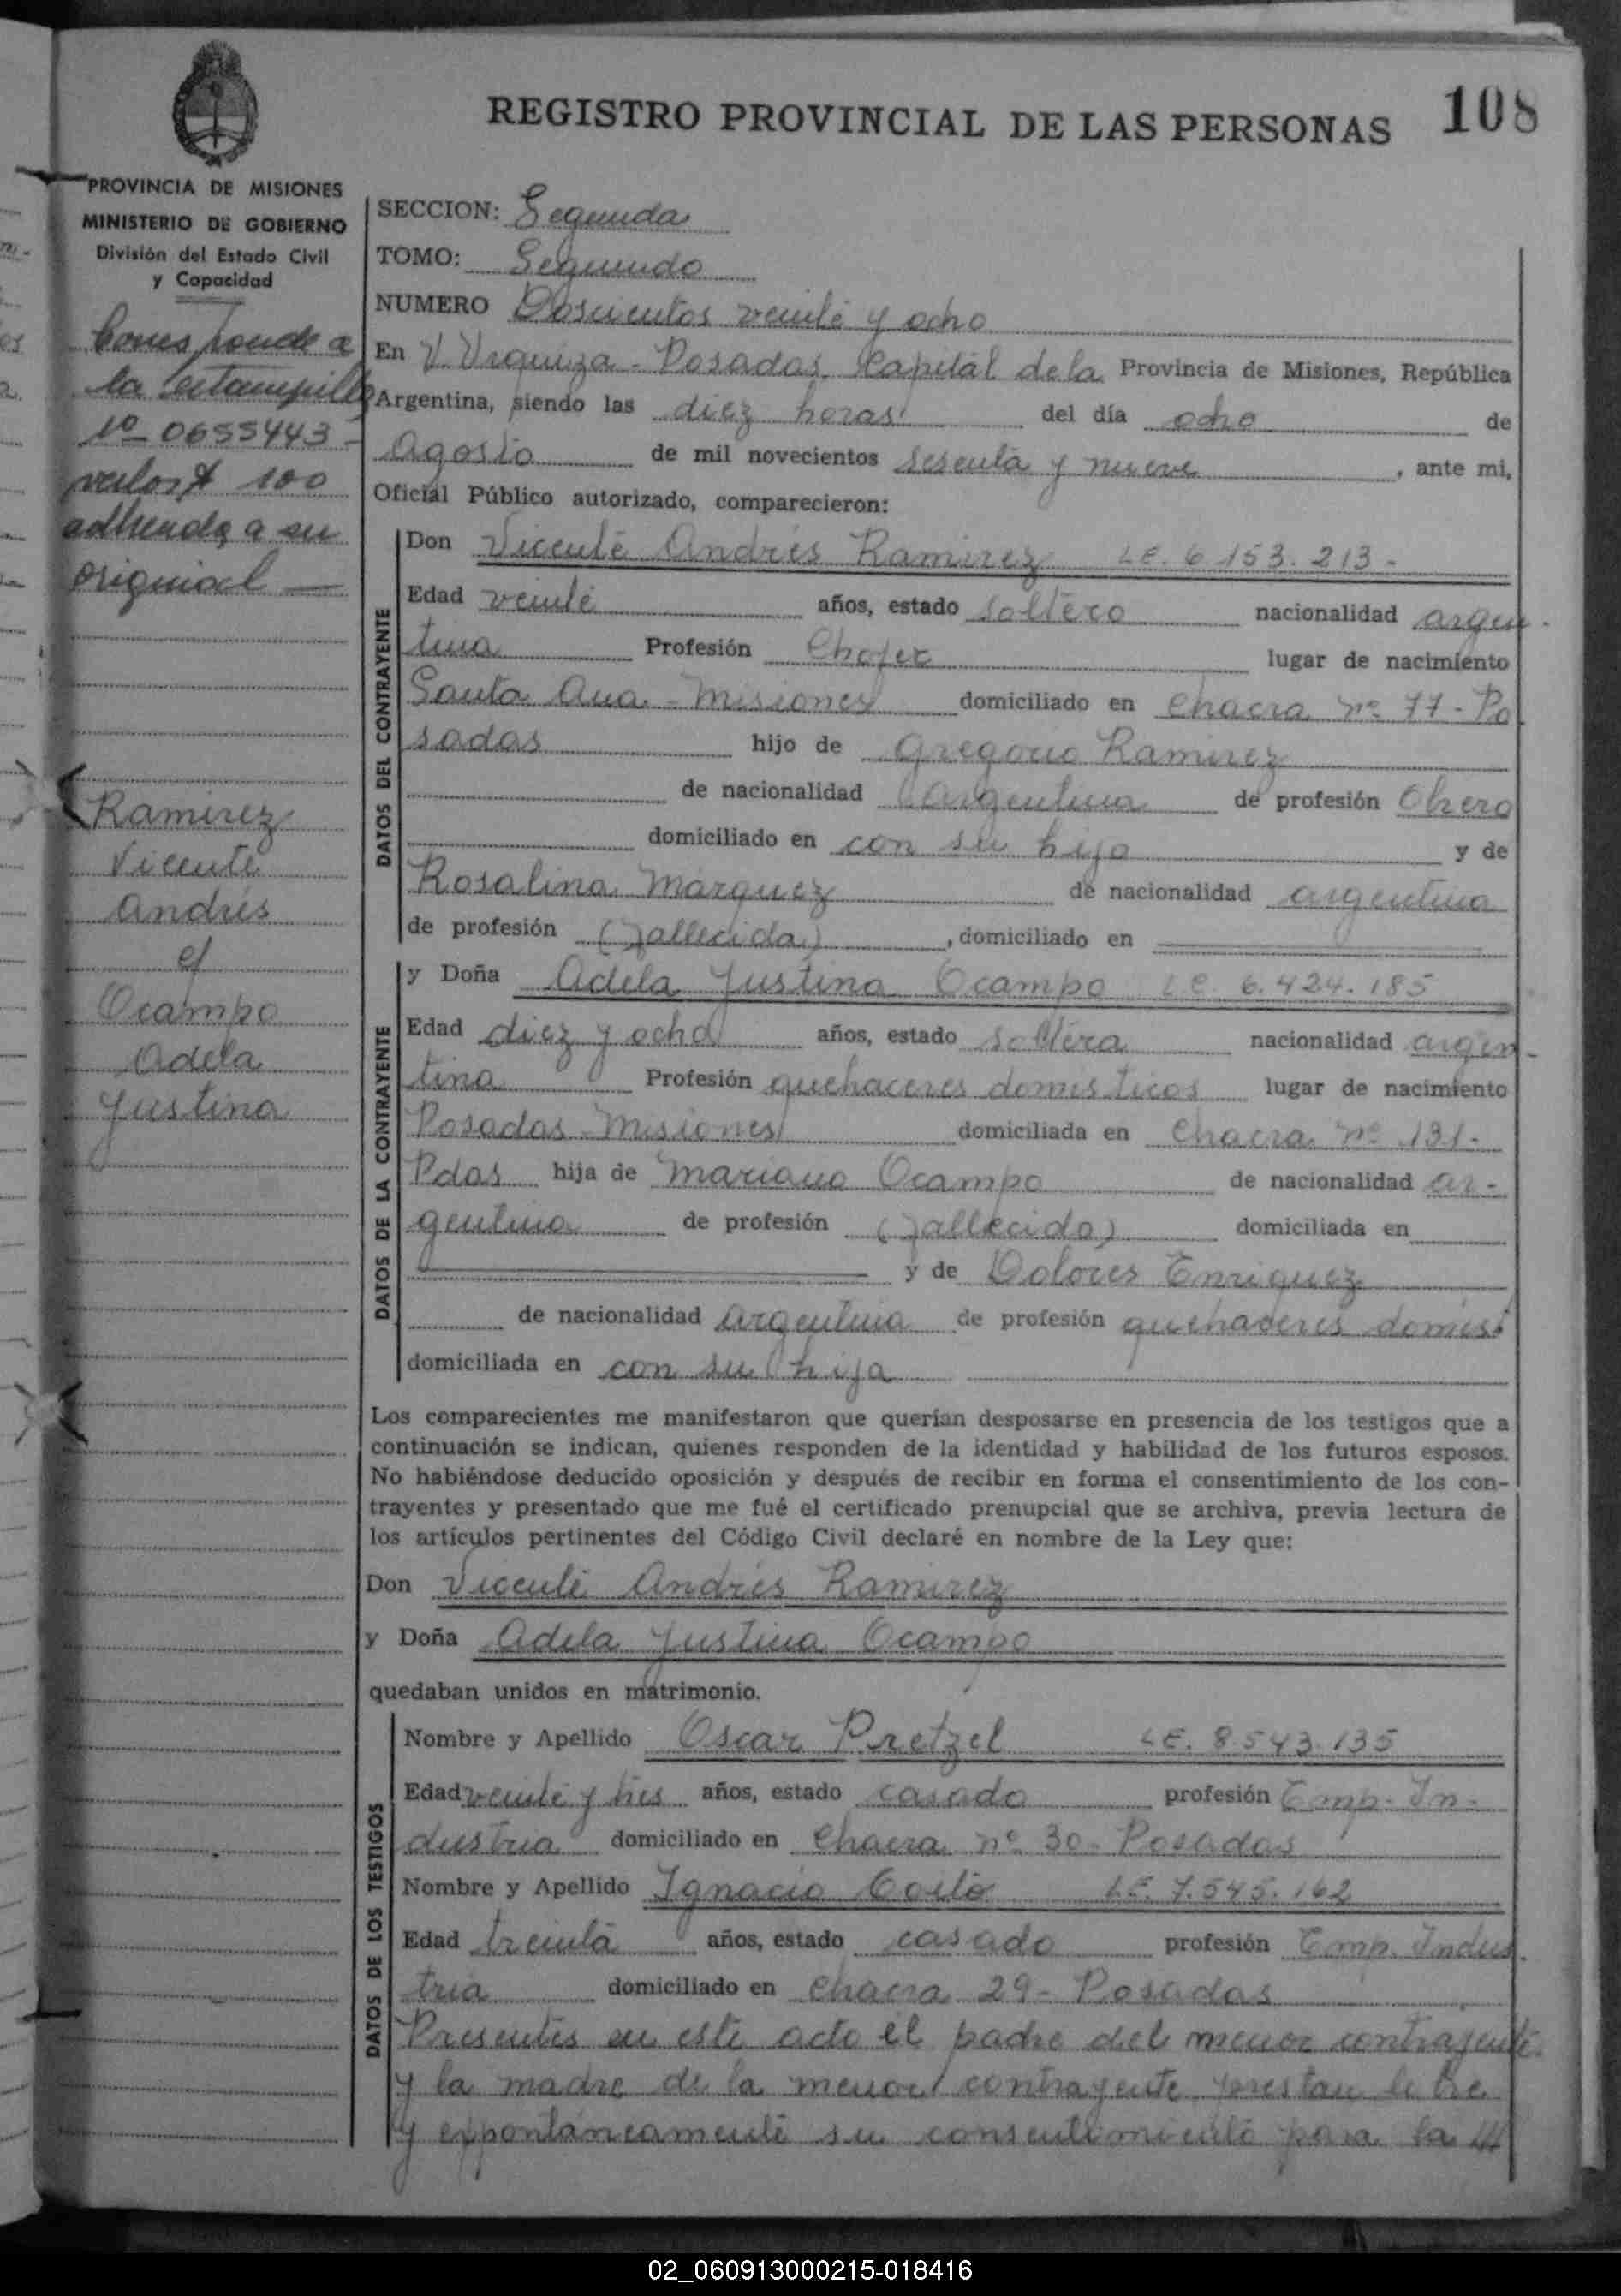 REGISTRO PROVINCIAL DE LAS PERSONAS 108
PROVINCIA DE MISIONES
MINISTERIO DE GOBIERNO
División del Estado Civil
y Capacidad
Corresponde a
la estampilla
Nº 0655443 -
valor $ 100
adherida a su
original —
Ramirez
Vicente
Andrés
c/
Ocampo
Adela
Justina
SECCION: Segunda
TOMO: Segundo
NUMERO Doscientos veinte y ocho
En V. Urquiza - Posadas, Capital de la Provincia de Misiones, República
Argentina, siendo las diez horas del día ocho de
Agosto de mil novecientos sesenta y nueve, ante mi,
Oficial Público autorizado, comparecieron:
DATOS DEL CONTRAYENTE
Don Vicente Andrés Ramirez LE. 6.153.213 -
Edad veinte años, estado soltero nacionalidad argen-
tina Profesión Chofer lugar de nacimiento
Santa Ana - Misiones domiciliado en Chacra nº 77 - Po
sadas hijo de Gregorio Ramirez
de nacionalidad argentina de profesión Obrero
domiciliado en con su hijo y de
Rosalina Márquez de nacionalidad argentina
de profesión (fallecida), domiciliado en
DATOS DE LA CONTRAYENTE
y Doña Adela Justina Ocampo L.C. 6.424.185
Edad diez y ocho años, estado soltera nacionalidad argen-
tina Profesión quehaceres domesticos lugar de nacimiento
Posadas - Misiones domiciliada en Chacra nº 131 -
Pdas hija de Mariano Ocampo de nacionalidad ar-
gentina de profesión (fallecido) domiciliada en
y de Dolores Enriquez
de nacionalidad argentina de profesión quehaceres domést
domiciliada en con su hija
Los comparecientes me manifestaron que querían desposarse en presencia de los testigos que a
continuación se indican, quienes responden de la identidad y habilidad de los futuros esposos.
No habiéndose deducido oposición y después de recibir en forma el consentimiento de los con-
trayentes y presentado que me fué el certificado prenupcial que se archiva, previa lectura de
los artículos pertinentes del Código Civil declaré en nombre de la Ley que:
Don Vicente Andrés Ramirez
y Doña Adela Justina Ocampo
quedaban unidos en matrimonio.
DATOS DE LOS TESTIGOS
Nombre y Apellido Oscar Pretzel LE. 8.543.135
Edad veinte y tres años, estado casado profesión Emp. In-
dustria domiciliado en Chacra nº 30 - Posadas
Nombre y Apellido Ignacio LE. 7.545.162
Edad treinta años, estado casado profesión Emp. Indus-
tria domiciliado en Chacra 29 - Posadas
Presentes en este acto el padre del menor contrayente
y la madre de la menor contrayente, prestan libre
y expontáneamente su consentimiento para la
02_060913000215-018416